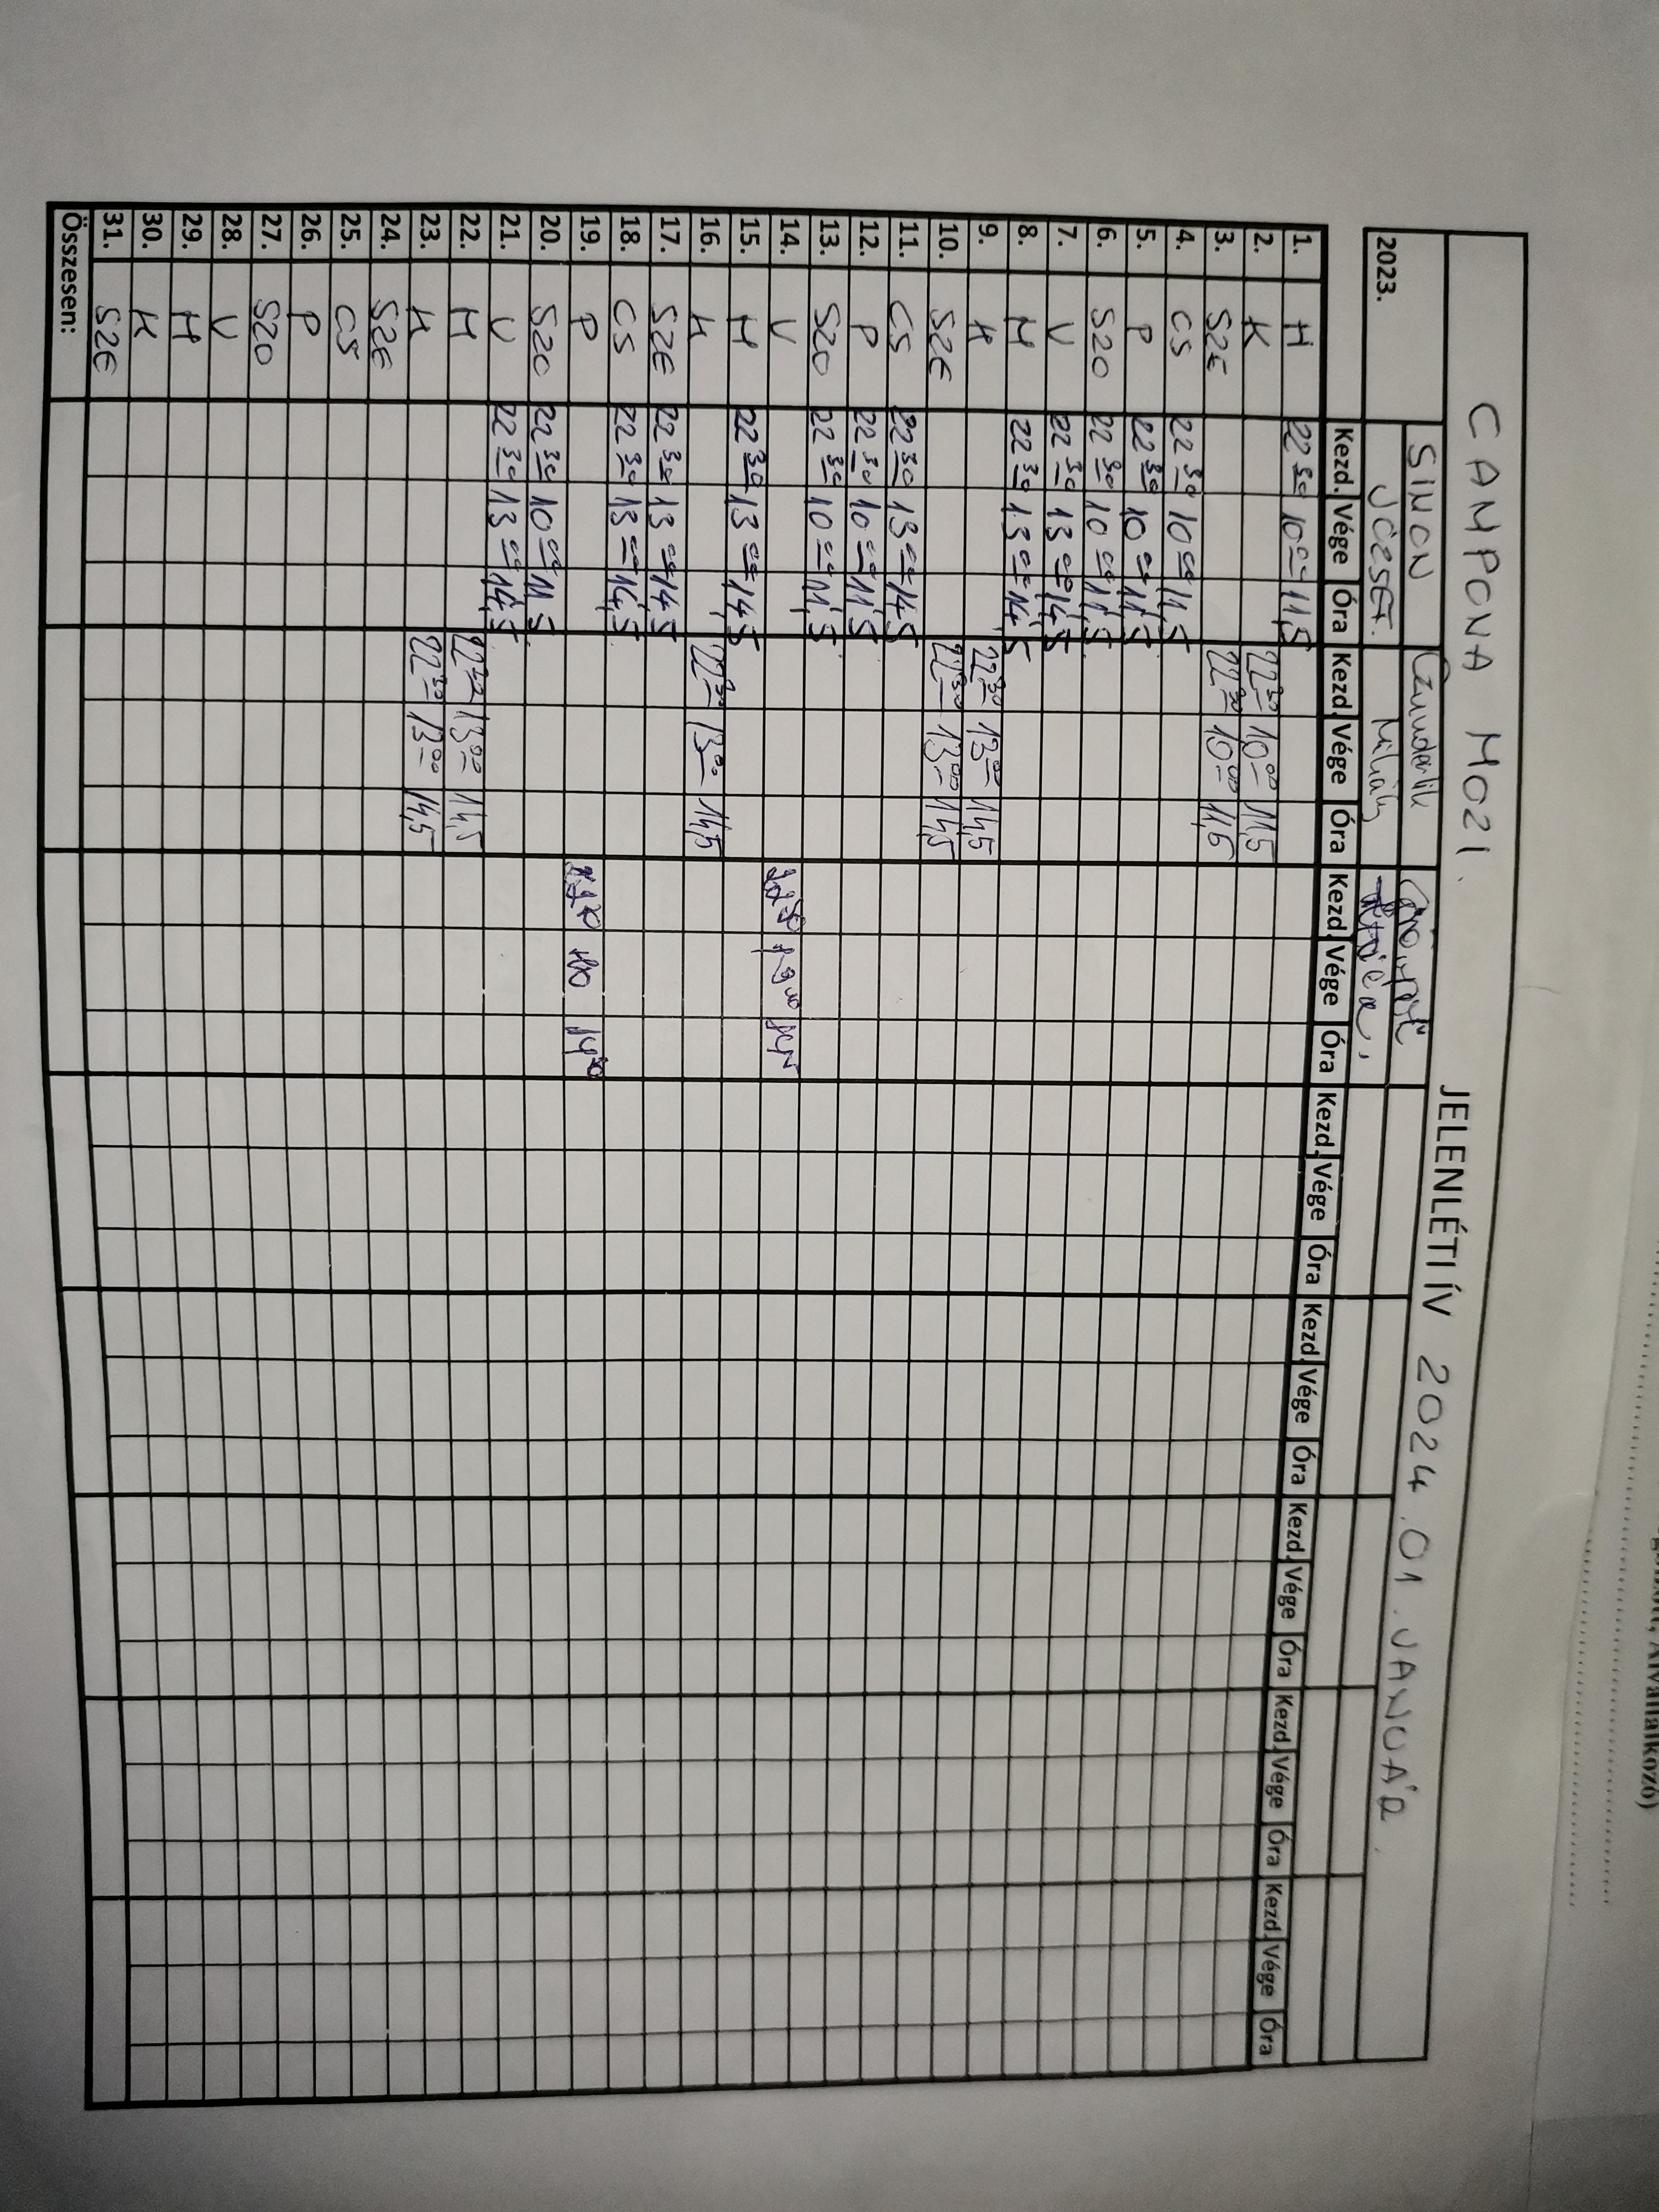 CAMPONA MOZI.
JELENLÉTI ÍV 2024.01.JANUÁR.
2023. SIMON JÓZSEF. Mihály
Kezd. Vége Óra Kezd. Vége Óra Kezd. Vége Óra Kezd. Vége Óra Kezd. Vége Óra Kezd. Vége Óra Kezd. Vége Óra Kezd. Vége Óra
1. H 22 30 10 00 11,5
2. K 22 30 10 00 11,5
3. SZE 22 30 10 00 11,5
4. CS 22 30 10 00 11,5
5. P 22 30 10 00 11,5
6. SZO 22 30 10 00 11,5
7. V 22 30 13 00 14,5
8. H 22 30 13 00 14,5
9. K 22 30 13 00 14,5
10. SZE 22 30 13 00 14,5
11. CS 22 30 13 00 14,5
12. P 22 30 10 00 11,5
13. SZO 22 30 10 00 11,5
14. V
15. H 22 30 13 00 14,5
16. K 22 30 13 00 14,5
17. SZE 22 30 13 00 14,5
18. CS 22 30 13 00 14,5
19. P
20. SZO 22 30 10 00 11,5
21. V 22 30 13 00 14,5
22. H 22 30 13 00 14,5
23. K 22 30 13 00 14,5
24. SZE
25. CS
26. P
27. SZO
28. V
29. H
30. K
31. SZE
Összesen: